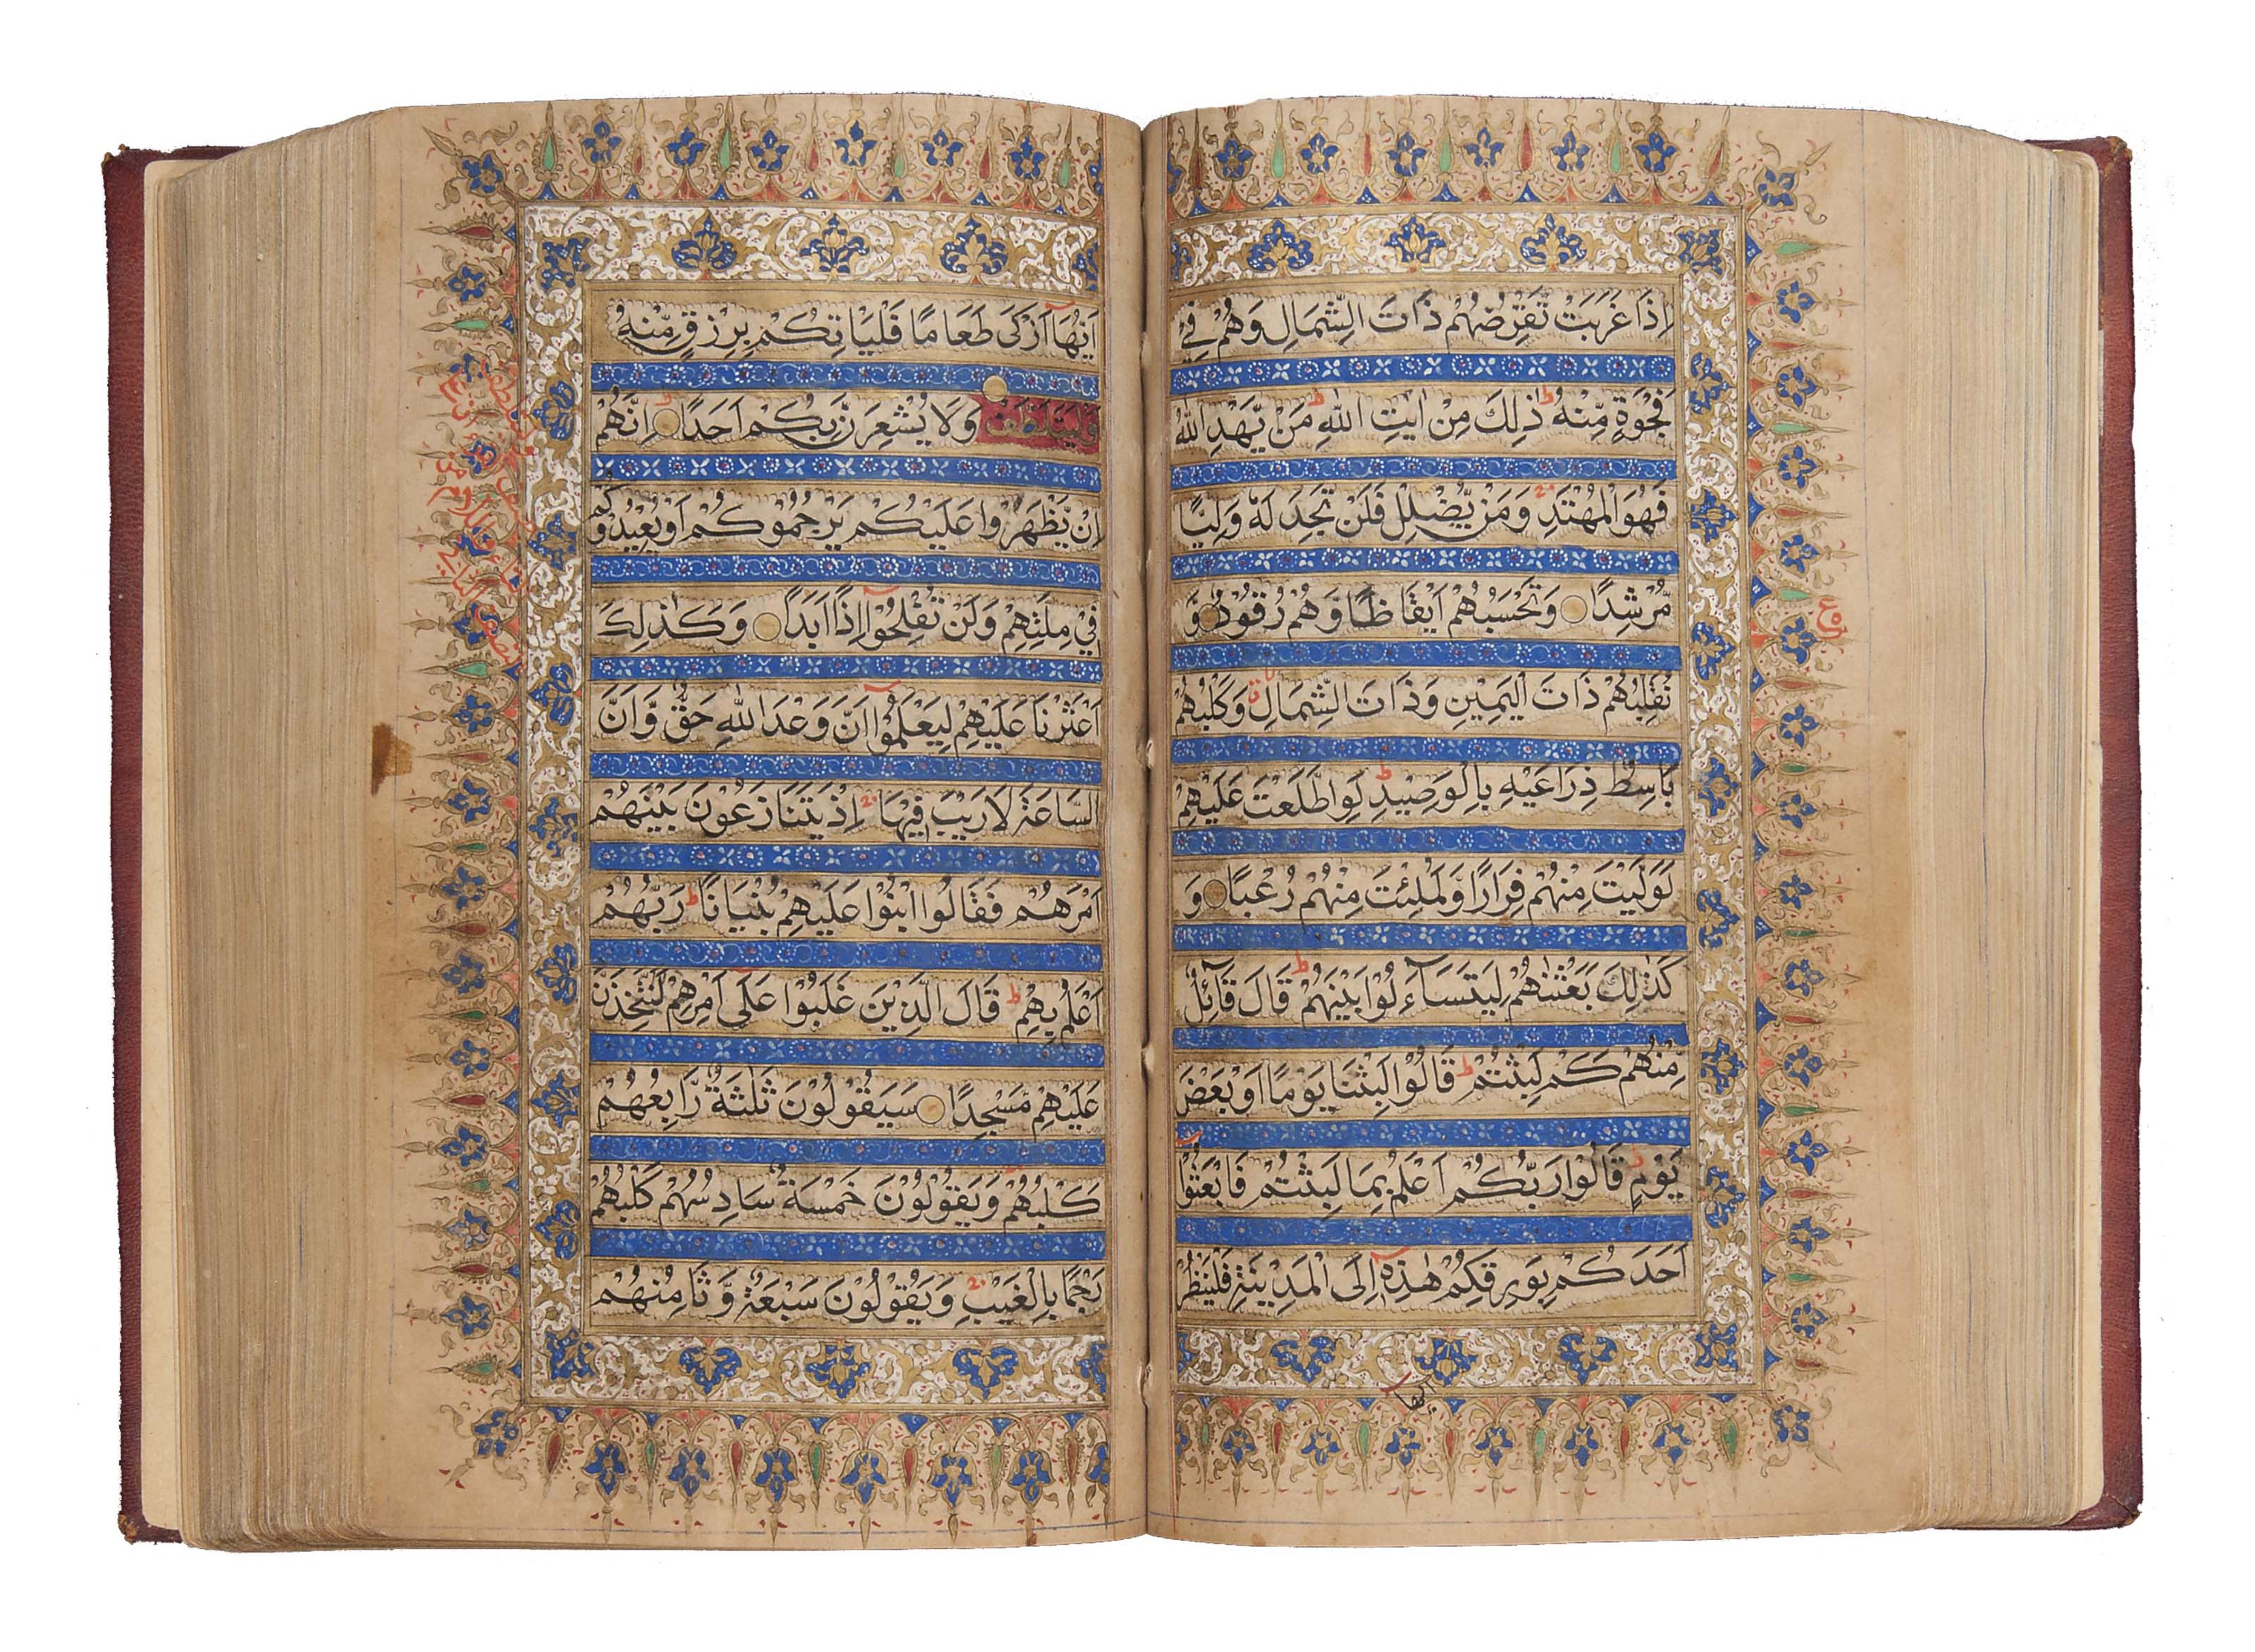 اِذَا غَرَبَتْ تَّقْرِضُهُمْ ذَاتَ الشِّمَالِ وَهُمْ فِيْ
فَجْوَةٍ مِّنْهُ ط ذٰلِكَ مِنْ اٰيٰتِ اللّٰهِ ط مَنْ يَّهْدِ اللّٰهُ
فَهُوَ الْمُهْتَدِ وَمَنْ يُّضْلِلْ فَلَنْ تَجِدَ لَهٗ وَلِيًّا
مُّرْشِدًا وَتَحْسَبُهُمْ اَيْقَاظًا وَّهُمْ رُقُوْدٌ وَّ
نُقَلِّبُهُمْ ذَاتَ الْيَمِيْنِ وَذَاتَ الشِّمَالِ وَكَلْبُهُمْ
بَاسِطٌ ذِرَاعَيْهِ بِالْوَصِيْدِ ط لَوِ اطَّلَعْتَ عَلَيْهِمْ
لَوَلَّيْتَ مِنْهُمْ فِرَارًا وَّلَمُلِئْتَ مِنْهُمْ رُعْبًا وَ
كَذٰلِكَ بَعَثْنٰهُمْ لِيَتَسَآءَلُوْا بَيْنَهُمْ ط قَالَ قَآئِلٌ
مِّنْهُمْ كَمْ لَبِثْتُمْ ط قَالُوْا لَبِثْنَا يَوْمًا اَوْ بَعْضَ
يَوْمٍ ط قَالُوْا رَبُّكُمْ اَعْلَمُ بِمَا لَبِثْتُمْ فَابْعَثُوْا
اَحَدَكُمْ بِوَرِقِكُمْ هٰذِهٖ اِلَى الْمَدِيْنَةِ فَلْيَنْظُرْ
ايها
اَيُّهَا اَزْكٰى طَعَامًا فَلْيَاْتِكُمْ بِرِزْقٍ مِّنْهُ
وَلْيَتَلَطَّفْ وَلَا يُشْعِرَنَّ بِكُمْ اَحَدًا اِنَّهُمْ
اِنْ يَّظْهَرُوْا عَلَيْكُمْ يَرْجُمُوْكُمْ اَوْ يُعِيْدُوْكُمْ
فِيْ مِلَّتِهِمْ وَلَنْ تُفْلِحُوْا اِذًا اَبَدًا وَكَذٰلِكَ
اَعْثَرْنَا عَلَيْهِمْ لِيَعْلَمُوْا اَنَّ وَعْدَ اللّٰهِ حَقٌّ وَّاَنَّ
السَّاعَةَ لَا رَيْبَ فِيْهَا اِذْ يَتَنَازَعُوْنَ بَيْنَهُمْ
اَمْرَهُمْ فَقَالُوا ابْنُوْا عَلَيْهِمْ بُنْيَانًا ط رَبُّهُمْ
اَعْلَمُ بِهِمْ ط قَالَ الَّذِيْنَ غَلَبُوْا عَلٰى اَمْرِهِمْ لَنَتَّخِذَنَّ
عَلَيْهِمْ مَسْجِدًا سَيَقُوْلُوْنَ ثَلٰثَةٌ رَّابِعُهُمْ
كَلْبُهُمْ وَيَقُوْلُوْنَ خَمْسَةٌ سَادِسُهُمْ كَلْبُهُمْ
رَجْمًا بِالْغَيْبِ وَيَقُوْلُوْنَ سَبْعَةٌ وَّثَامِنُهُمْ